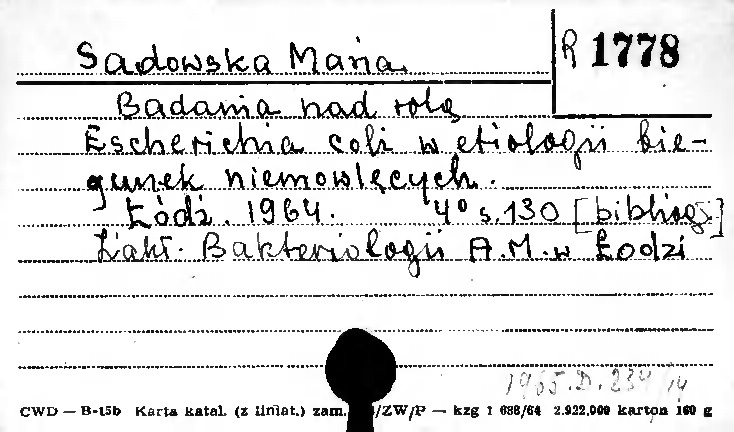 Sadowska Maria. R 1778
Badania nad rolą
Escherichia coli w etiologii bie-
gunek niemowlęcych.
Łódź. 1964. 4° s. 130 [bibliogr.]
Zakł. Bakteriologii A.M. w Łodzi
1965.D.234/14
CWD — B-15b Karta katal. (z liniat.) zam. /ZW/P — kzg 1 688/64 2.922.000 karton 160 g